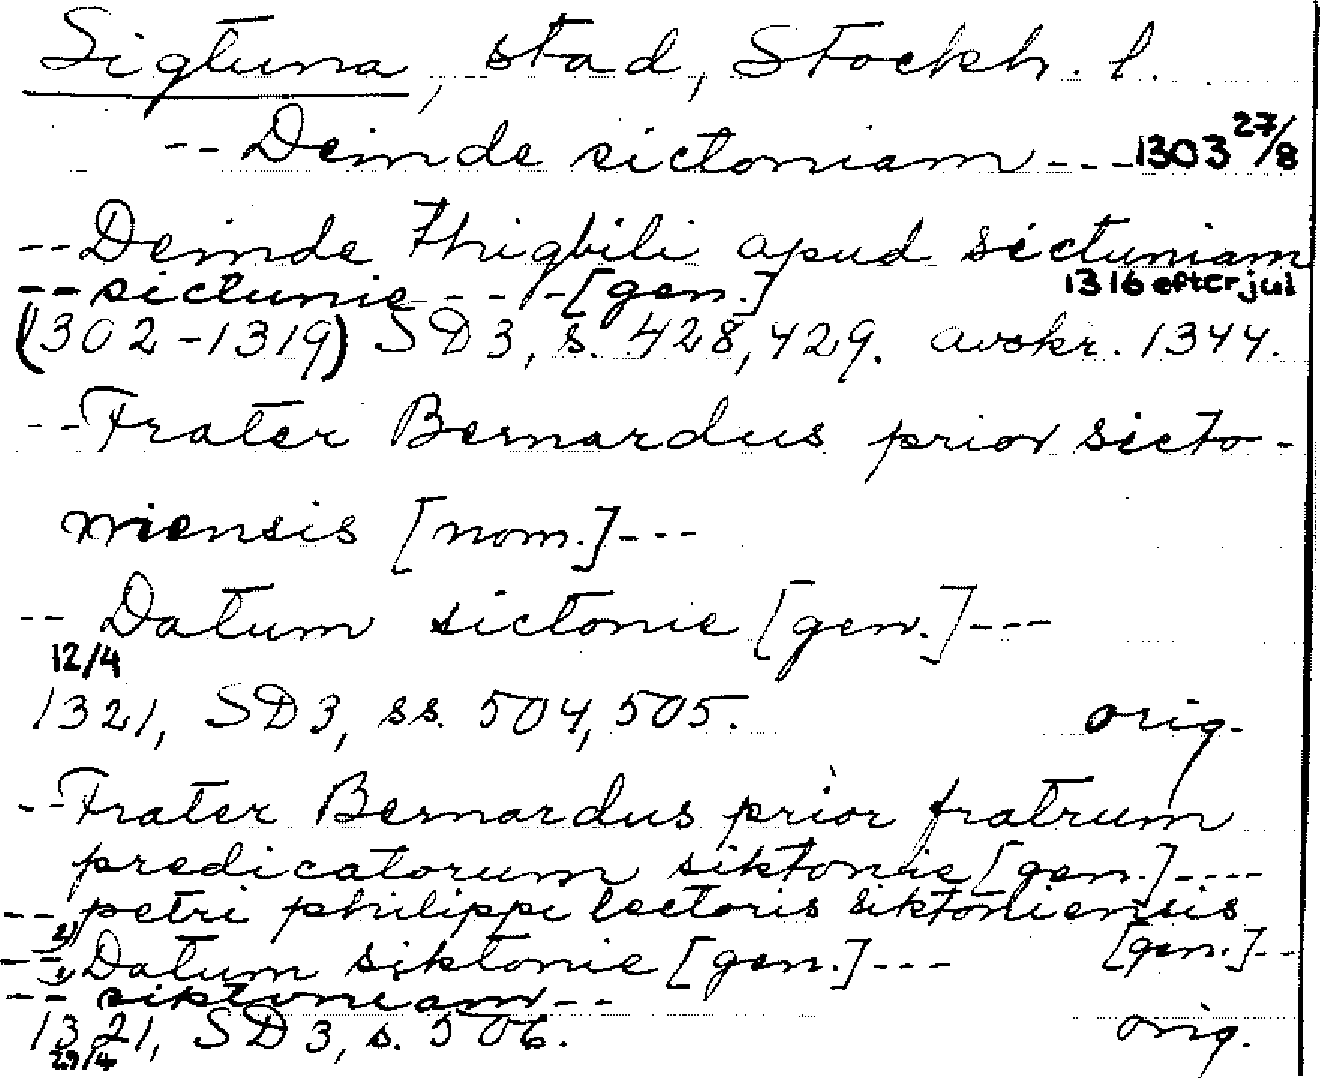 Sigtuna, stad, Stockh. l.
-- Deinde sictoniam --- 1303 27/8
-- Deinde Thigbili apud sictuniam
-- sictunie --- [gen.] 1316 efter jul
(1302-1319) SD3, s. 428, 429. avskr. 1344.
-- Frater Bernardus prior sicto-
niensis [nom.] ---
-- Datum sictonie [gen.] ---
12/4
1321, SD3, ss. 504, 505. orig.
-- Frater Bernardus prior fratrum
predicatorum siktonie [gen.] ----
-- petri philippi lectoris siktoniensis
-- Datum siktonie [gen.] --- [gen.] --
-- siktoniam --
1321, SD3, s. 506. orig.
29/4